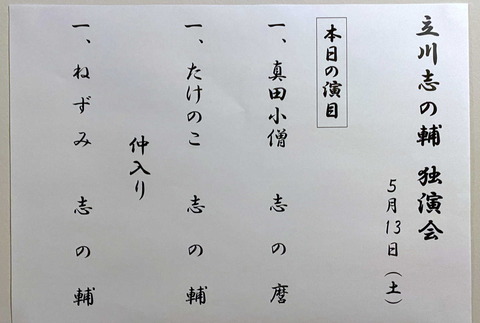 立川志の輔 独演会
5月13日(土)
本日の演目
一、真田小僧 志の麿
一、たけのこ 志の輔
仲入り
一、ねずみ 志の輔